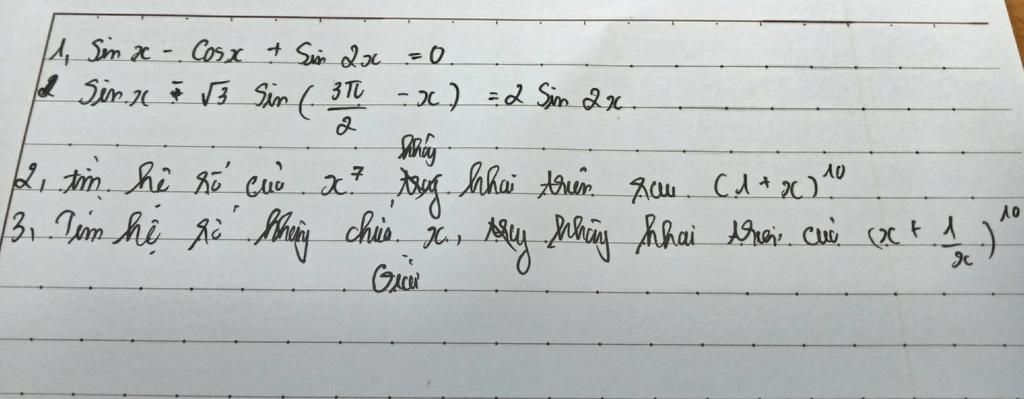 1, Sin x - Cosx + Sin 2x = 0.
2 Sin x - √3 Sin ( 3π/2 - x ) = 2 Sin 2x.
khãy
2, tìm hệ số của x⁷ khai triển sau (1 + x)¹⁰
3, Tìm hệ số không chứa x, khai triển của (x + 1/x)¹⁰
Giải